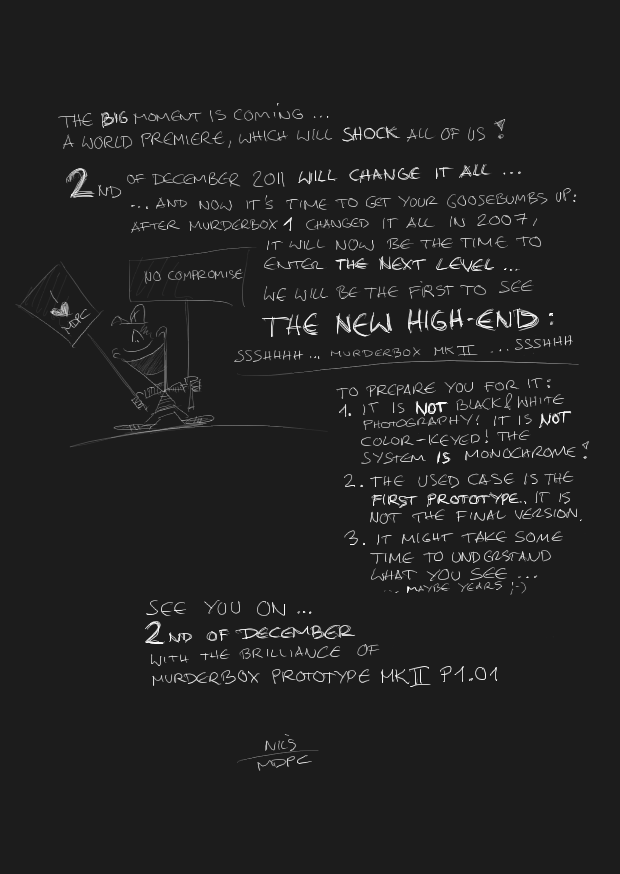 THE BIG MOMENT IS COMING ...
A WORLD PREMIERE, WHICH WILL SHOCK ALL OF US !
2ND OF DECEMBER 2011 WILL CHANGE IT ALL ...
... AND NOW IT'S TIME TO GET YOUR GOOSEBUMBS UP:
AFTER MURDERBOX 1 CHANGED IT ALL IN 2007,
IT WILL NOW BE THE TIME TO
ENTER THE NEXT LEVEL ...
WE WILL BE THE FIRST TO SEE
THE NEW HIGH-END:
SSSHHHH ... MURDERBOX MKII ... SSSHHHH
NO COMPROMISE
I ♥
MDPC
TO PREPARE YOU FOR IT:
1. IT IS NOT BLACK&WHITE
PHOTOGRAPHY! IT IS NOT
COLOR-KEYED! THE
SYSTEM IS MONOCHROME !
2. THE USED CASE IS THE
FIRST PROTOTYPE.. IT IS
NOT THE FINAL VERSION.
3. IT MIGHT TAKE SOME
TIME TO UNDERSTAND
WHAT YOU SEE ...
... MAYBE YEARS ;-)
SEE YOU ON ...
2ND OF DECEMBER
WITH THE BRILLIANCE OF
MURDERBOX PROTOTYPE MKII P1.01
NILS
MDPC